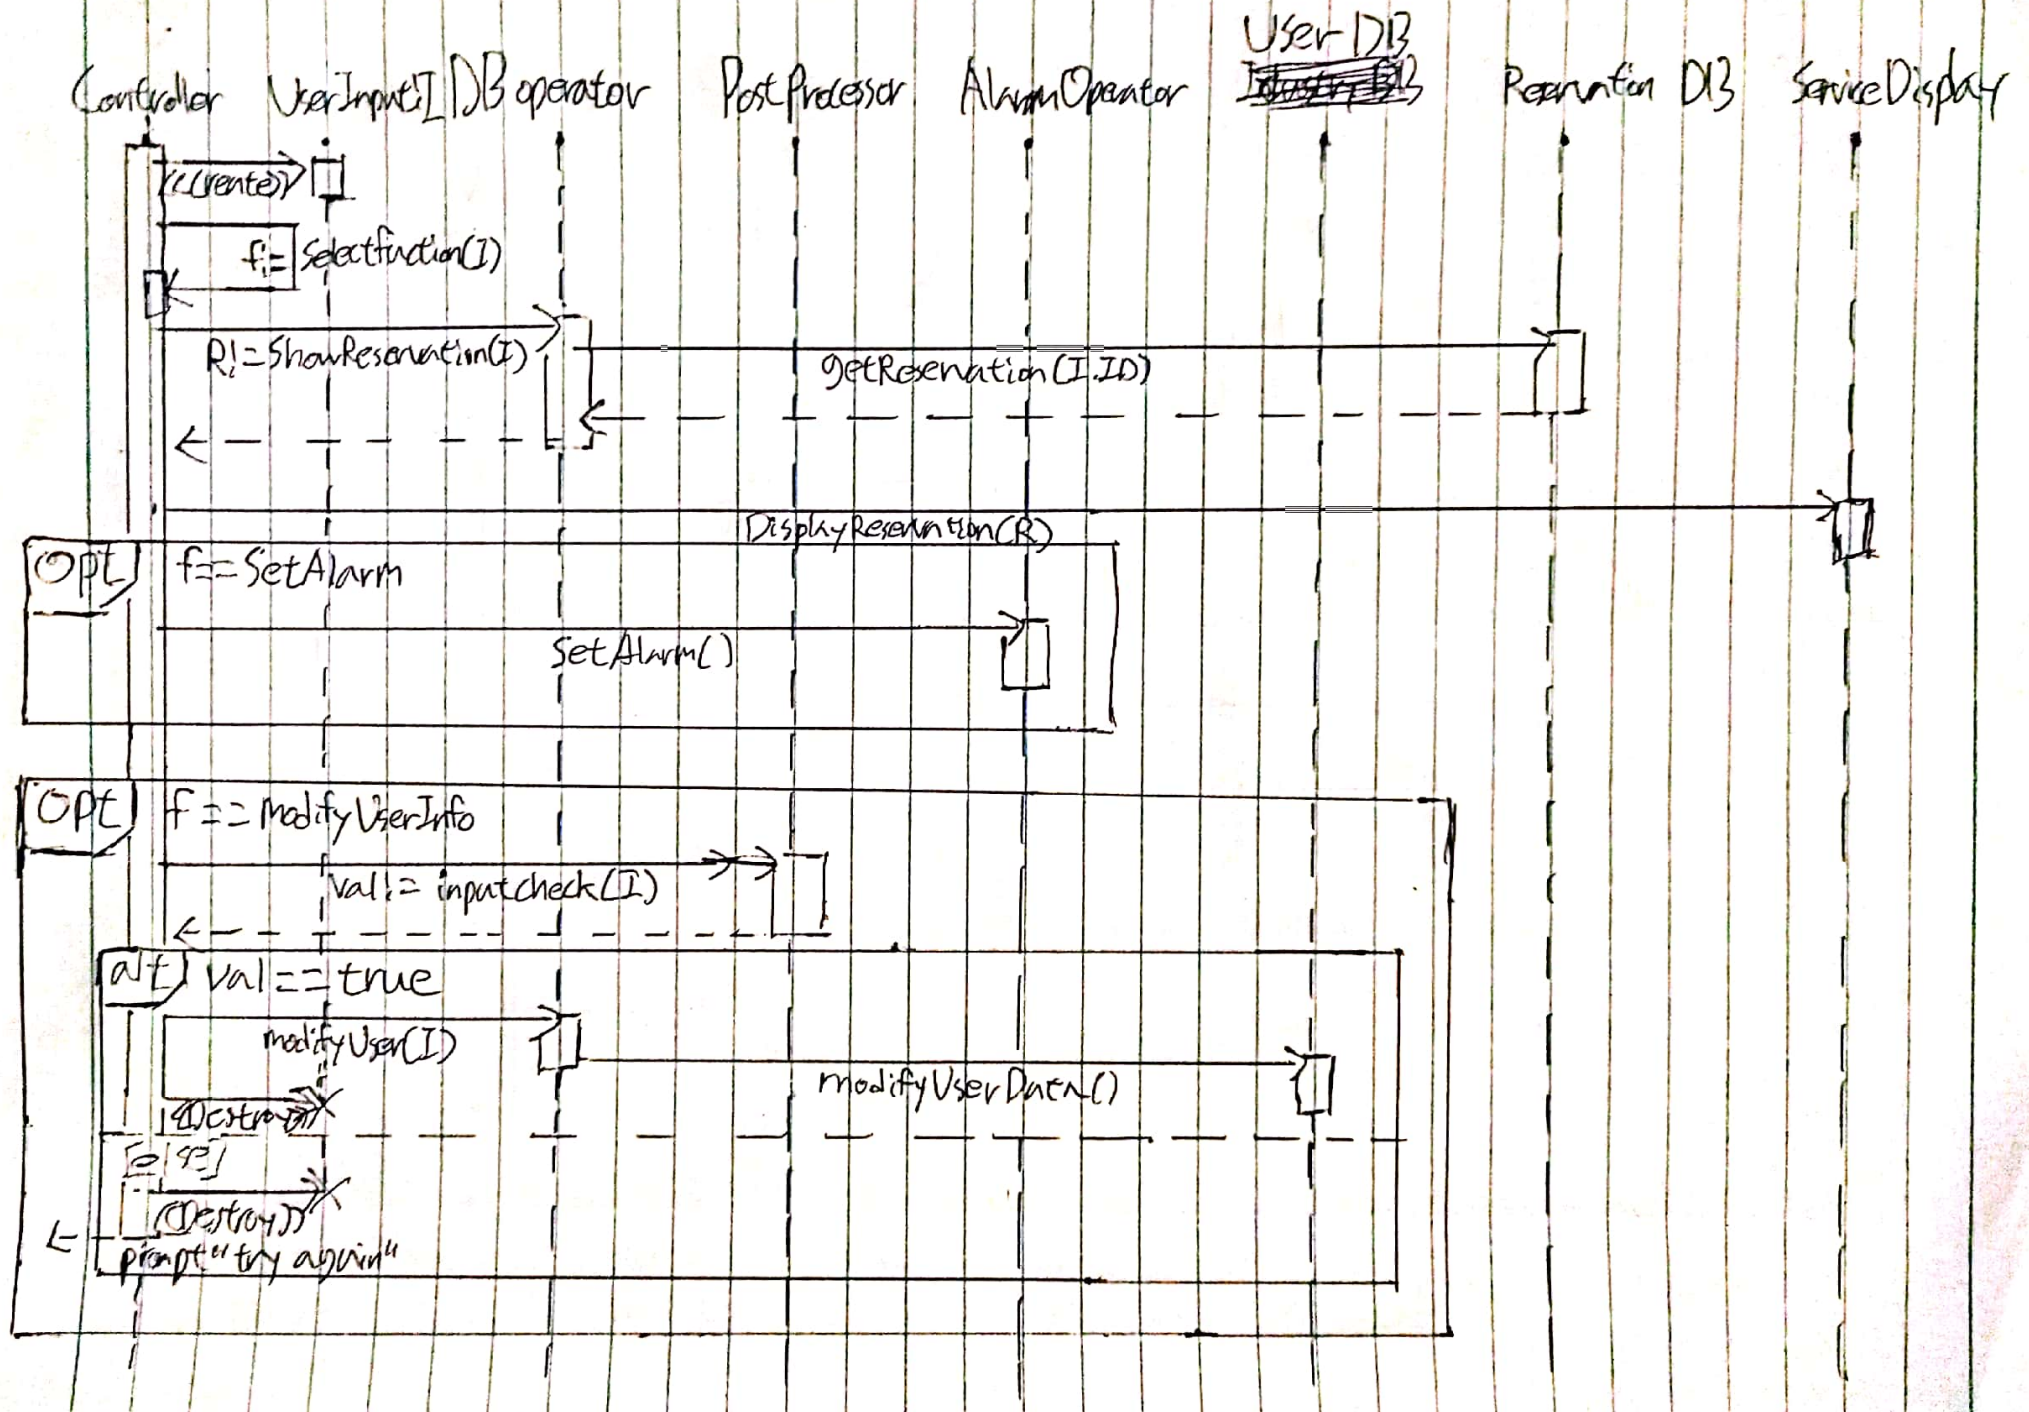 User DB
Controller UserInput:I DB operator PostProcessor AlarmOperator Reservation DB ServiceDisplay
<<create>>
f:= Selectfuction(I)
R:=ShowReservation(I)
getReservation(I.ID)
DisplayReservation(R)
Opt f==SetAlarm
SetAlarm()
Opt f==modifyUserInfo
val:= inputcheck(I)
alt val==true
modifyUser(I)
modifyUserData()
<<Destroy>>
[else]
<<Destroy>>
prompt "try again"